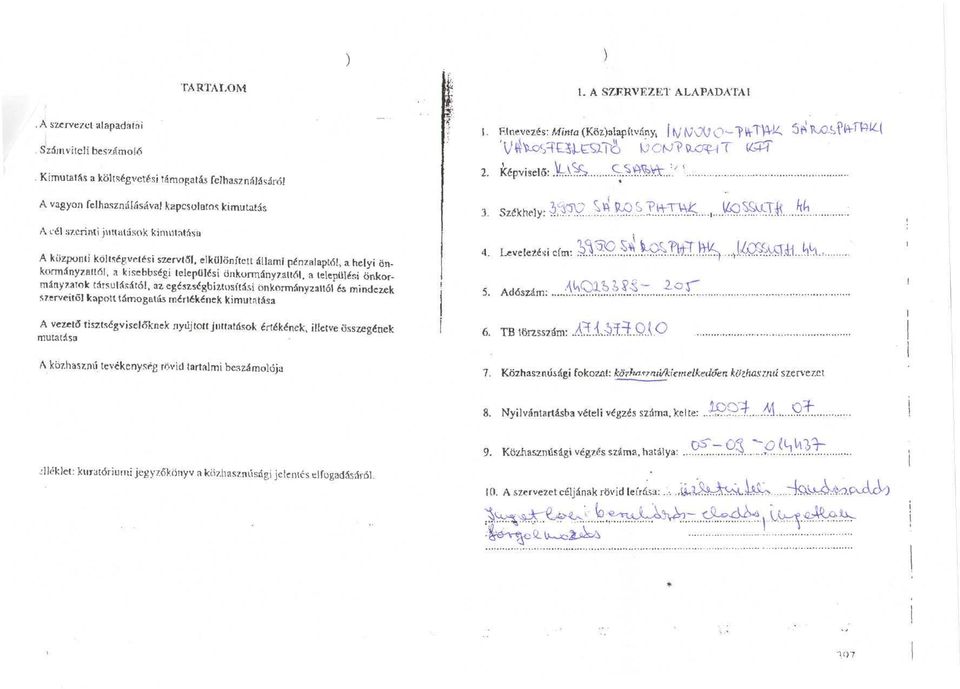 TARTALOM
. A szervezet alapadatai
. Számviteli beszámoló
. Kimutatás a költségvetési támogatás felhasználásáról
A vagyon felhasználásával kapcsolatos kimutatás
A cél szerinti juttatások kimutatása
A központi költségvetési szervtől, elkülönített állami pénzalaptól, a helyi ön-
kormányzattól, a kisebbségi települési önkormányzattól, a települési önkor-
mányzatok társulásától, az egészségbiztosítási önkormányzattól és mindezek
szerveitől kapott támogatás mértékének kimutatása
A vezető tisztségviselőknek nyújtott juttatások értékének, illetve összegének
mutatása
A közhasznú tevékenység rövid tartalmi beszámolója
elléklet: kuratóriumi jegyzőkönyv a közhasznúsági jelentés elfogadásáról.
1. A SZERVEZET ALAPADATAI
1. Elnevezés: Minta (Köz)alapítvány, INNOVO-PATAK SÁROSPATAKI
VÁROSFEJLESZTŐ NONPROFIT KFT
2. Képviselő: KISS CSABA
3. Székhely: 3950 SÁROSPATAK, KOSSUTH 44
4. Levelezési cím: 3950 SÁROSPATAK, KOSSUTH 44
5. Adószám: 14023389- 205
6. TB törzsszám: 1713770 10
7. Közhasznúsági fokozat: közhasznú/kiemelkedően közhasznú szervezet
8. Nyilvántartásba vételi végzés száma, kelte: 2007 11 07
9. Közhasznúsági végzés száma, hatálya: 05-09-014437
10. A szervezet céljának rövid leírása: üzletviteli tanácsadás
Ingatlan beruházás- eladás, ingatlan
forgalmazás
307